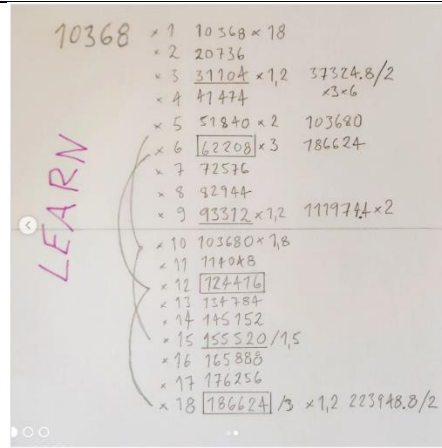 10368 × 1 10368 × 18
× 2 20736
× 3 31104 × 1,2 37324.8/2
× 4 41474 ×3×6
× 5 51840 × 2 103680
× 6 62208 × 3 186624
× 7 72576
× 8 82944
× 9 93312 × 1,2 111974.4 × 2
× 10 103680 × 1,8
× 11 114048
× 12 124416
× 13 134784
× 14 145152
× 15 155520 /1,5
× 16 165888
× 17 176256
× 18 186624 /3 × 1,2 223948.8/2
LEARN